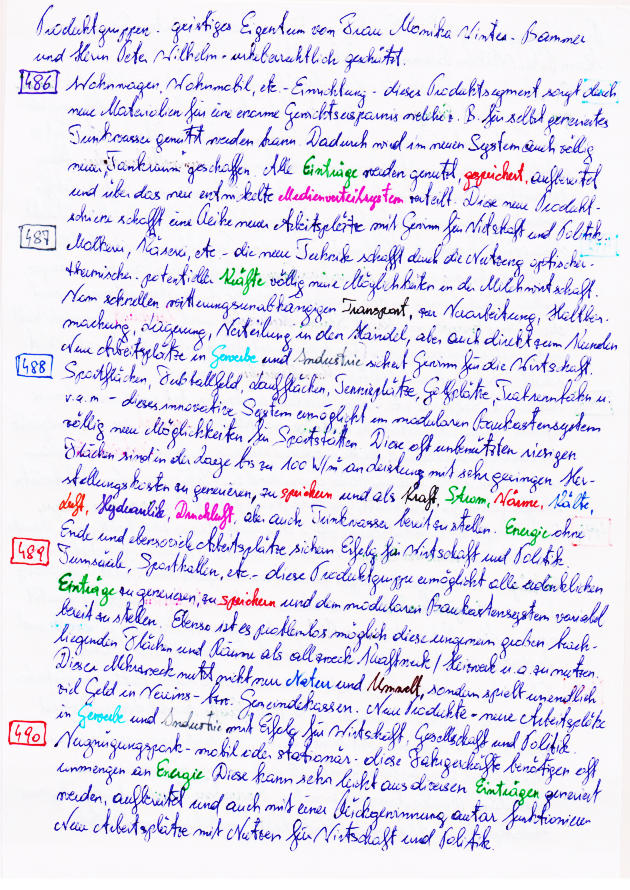 Produktgruppen - geistiges Eigentum von Frau Monika Winter-Bammer
und Herrn Peter Wilhelm - urheberrechtlich geschützt.
486 Wohnwagen, Wohnmobil, etc. - Einrichtung - dieses Produktsegment sorgt durch
neue Materialien für eine enorme Gewichtsersparnis welche z. B. für selbst generiertes
Trinkwasser genutzt werden kann. Dadurch wird im neuen System auch völlig
neuer "Tankraum" geschaffen. Alle Einträge werden genutzt, gespeichert, aufbereitet
und über das neu entwickelte Medienverteilsystem verteilt. Diese neue Produkt-
schiene schafft eine Reihe neuer Arbeitsplätze mit Gewinn für Wirtschaft und Politik.
487 Molkerei, Käserei, etc. - die neue Technik schafft durch die Nutzung optischer-
thermischer-potentieller Kräfte völlig neue Möglichkeiten in der Milchwirtschaft.
Vom schnellen witterungsunabhängigen Transport, zur Verarbeitung, Haltbar-
machung, Lagerung, Verteilung in den Handel, aber auch direkt zum Kunden
Neue Arbeitsplätze in Gewerbe und Industrie sichert Gewinn für die Wirtschaft.
488 Sportflächen, Fußballfeld, Laufflächen, Tennisplätze, Golfplätze, Tratrennbahn u.
v. a. m - dieses innovative System ermöglicht im modularen Baukastensystem
völlig neue Möglichkeiten für Sportstätten. Diese oft unbenützten riesigen
Flächen sind in der Lage bis zu 100 W/m² an Leistung mit sehr geringen Her-
stellungskosten zu generieren, zu speichern und als Kraft, Strom, Wärme, Kälte,
Luft, Hydraulik, Druckluft, aber auch Trinkwasser bereit zu stellen. Energie ohne
Ende und ebensoviele Arbeitsplätze sichern Erfolg für Wirtschaft und Politik.
489 Turnsäale, Sporthallen, etc. - diese Produktgruppe ermöglicht alle erdenklichen
Einträge zu generieren, zu speichern und dem modularen Baukastensystem variabel
bereit zu stellen. Ebenso ist es problemlos möglich diese ungemein großen brach-
liegenden Flächen und Räume als allzweck Kraftwerk / Heizwerk u. a. zu nutzen.
Dieser Mehrzweck nutzt nicht nur Natur und Umwelt, sondern spielt unendlich
viel Geld in Vereins- bzw. Gemeindekassen. Neue Produkte - neue Arbeitsplätze
in Gewerbe und Industrie mit Erfolg für Wirtschaft, Gesellschaft und Politik.
490 Vergnügungspark - mobil oder stationär - diese Fahrgeschäfte benötigen oft
unmengen an Energie Diese kann sehr leicht aus diversen Einträgen generiert
werden, aufbereitet und auch mit einer Rückgewinnung autar funktionieren
Neue Arbeitsplätze mit Nutzen für Wirtschaft und Politik.